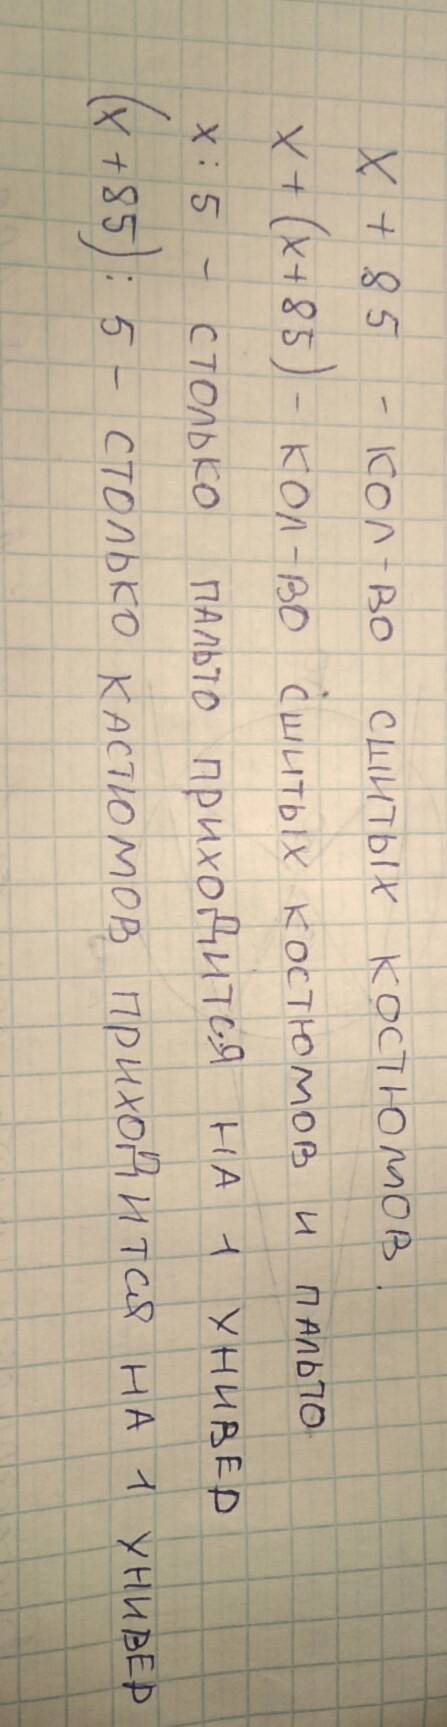 х + 85 - кол-во сшитых костюмов.
х + (х + 85) - кол-во сшитых костюмов и пальто
х : 5 - столько пальто приходится на 1 универ
(х + 85) : 5 - столько кастюмов приходится на 1 универ